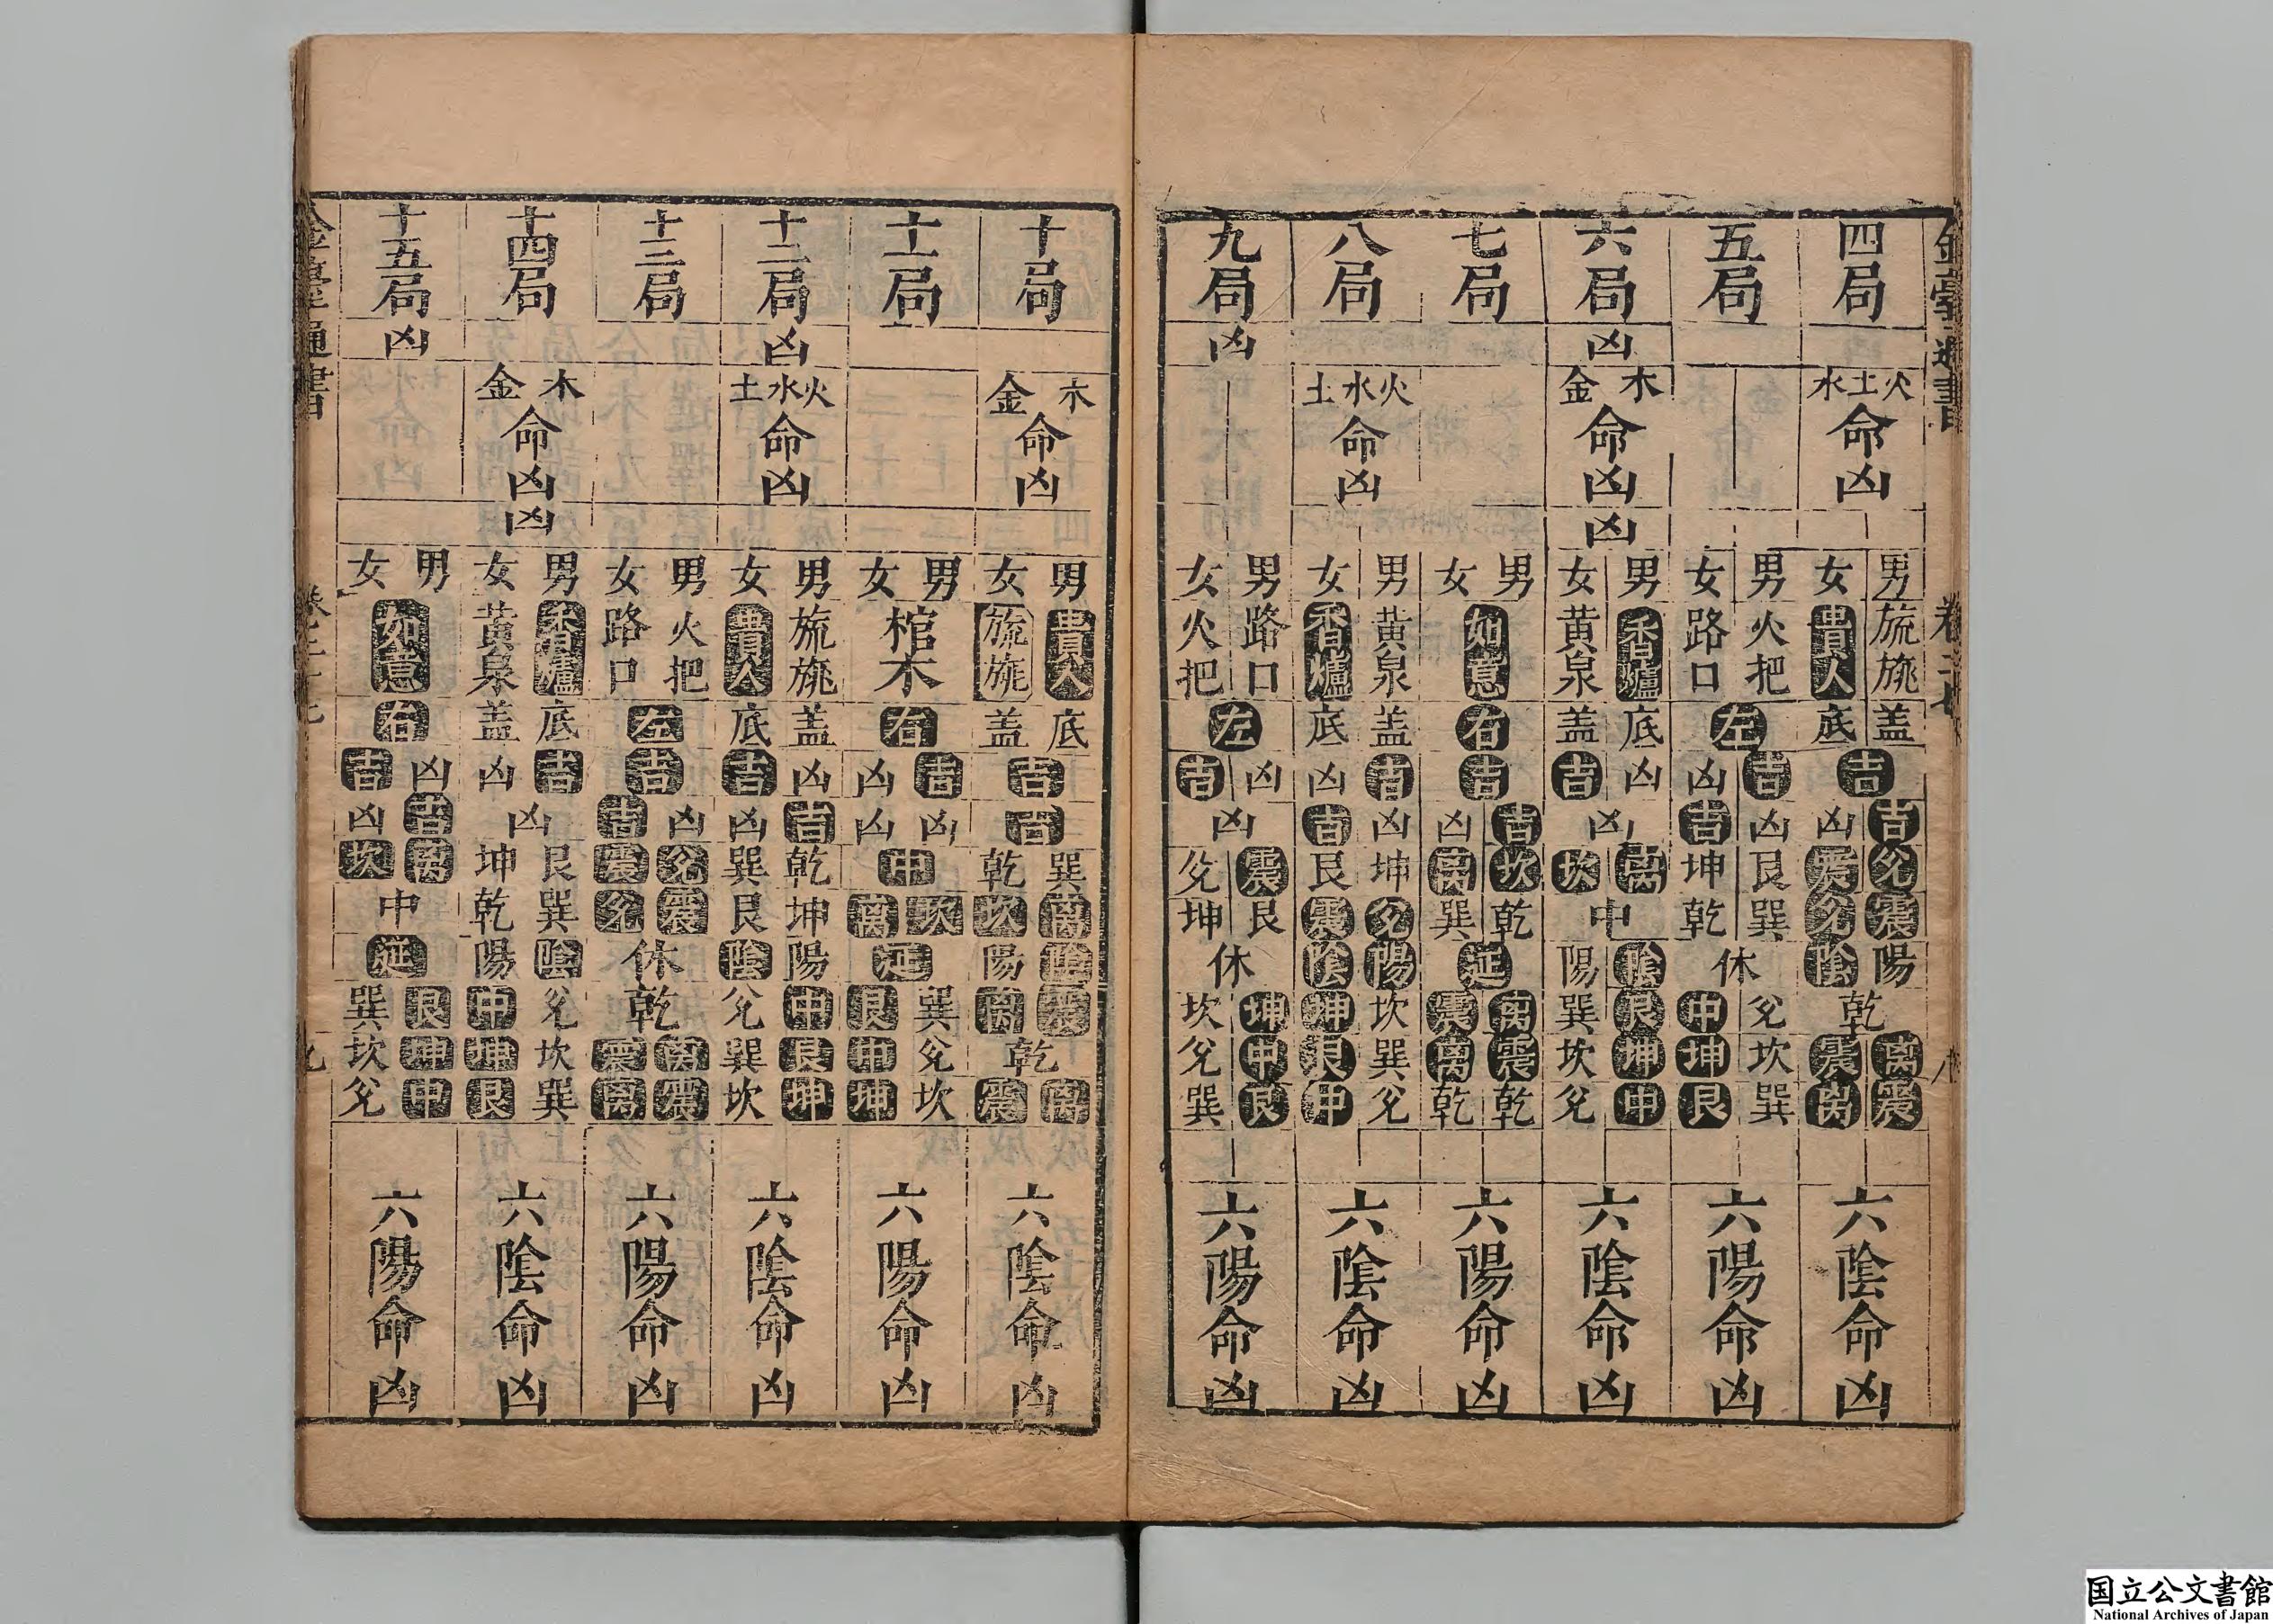 四局
火土水
命凶
男 女
旒旐 貴人
盖 底
吉
吉 凶
兊 震
震 兊
陽 陰
乾
离 震
震 离
六陰命凶
五局
男 女
火把 路口
左
吉 凶
凶 吉
艮 坤
巽 乾
休
兊 中
坎 坤
巽 艮
六陽命凶
六局
凶
木 金
命凶
凶
男 女
香爐 黃泉
底 盖
凶 吉
凶
离 坎
中
陰 陽
艮 巽
坤 坎
中 兊
六陰命凶
七局
男 女
如意
右
吉
吉 凶
坎 离
乾 巽
延
离 震
震 离
乾 乾
六陽命凶
八局
火水土
命凶
男 女
黃泉 香爐
盖 底
吉 凶
凶 吉
坤 艮
兊 震
陽 陰
坎 坤
巽 艮
兊 中
六陰命凶
九局
凶
男 女
路口 火把
左
凶 吉
凶
震 兊
艮 坤
休
坤 坎
中 兊
艮 巽
六陽命凶
十局
木 金
命凶
男 女
貴人 旒旐
底 盖
吉
吉
巽 乾
离 坎
陰 陽
震 离
乾
离 震
六陰命凶
十一局
男 女
棺木
右
吉 凶
凶 凶
中
坎 离
延
巽 艮
兊 中
坎 坤
六陽命凶
十二局
凶
火水土
命凶
男 女
旒旐 貴人
盖 底
凶 吉
吉 凶
乾 巽
坤 艮
陽 陰
中 兊
艮 巽
坤 坎
六陰命凶
十三局
男 女
火把 路口
左
吉
凶 吉
兊 震
震 兊
休
乾
离 震
震 离
六陽命凶
十四局
木 金
命凶
凶
男 女
香爐 黃泉
底 盖
吉 凶
凶
艮 坤
巽 乾
陰 陽
兊 中
坎 坤
巽 艮
六陰命凶
十五局
凶
男 女
如意
右
凶 吉
吉 凶
离 坎
中
延
艮 巽
坤 坎
中 兊
六陽命凶
国立公文書館
National Archives of Japan